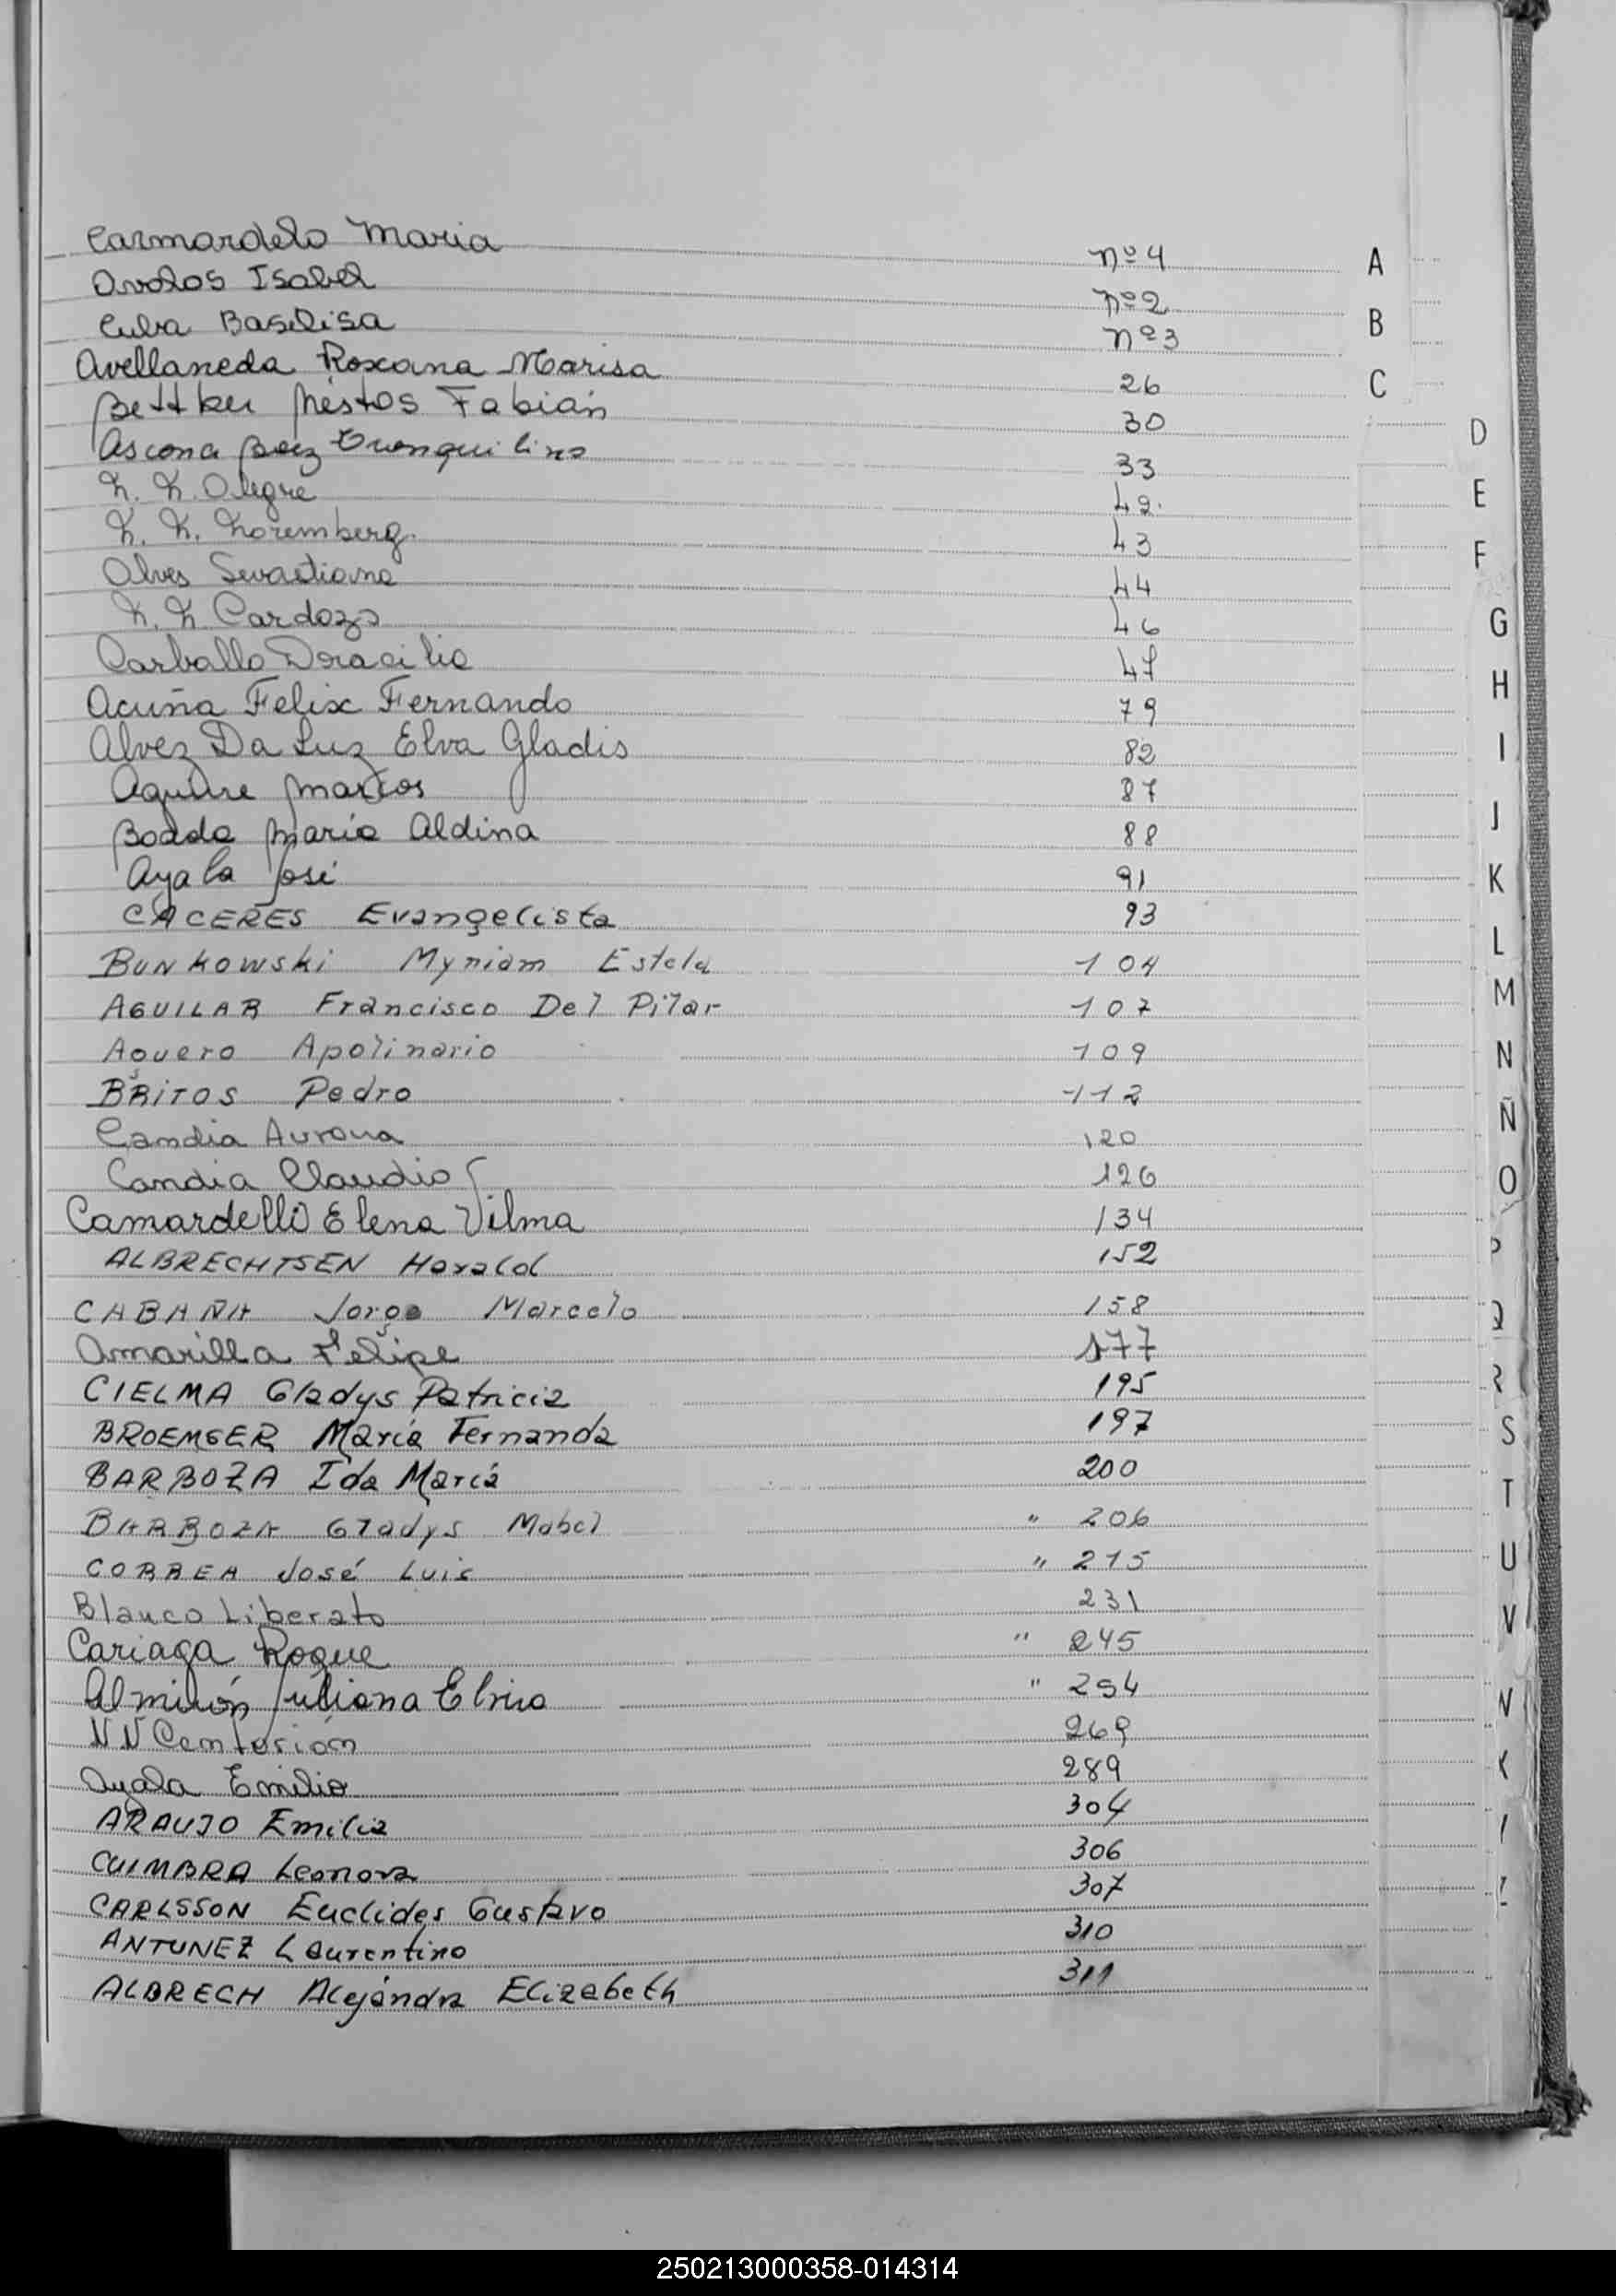 Carmardelo Maria nº 4
Avalos Isabel nº 2
Cuba Basilisa nº 3
Avellaneda Roxana Marisa 26
Bettker Néstos Fabián 30
Ascona Baez Tranquilino 33
N. N. Alegre 42
N. N. Noremberg 43
Alves Sevastiana 44
N. N Cardozo 46
Carballo Doracilia 47
Acuña Felix Fernando 79
Alvez Da Luz Elva Gladis 82
Aguirre Marcos 87
Boada María Aldina 88
Ayala José 91
CACERES Evangelista 93
BUNKOWSKI Myriam Estela 104
AGUILAR Francisco Del Pilar 107
Aguero Apolinario 109
BRITOS Pedro 112
Candia Aurora 120
Candia Claudio 126
Camardelli Elena Vilma 134
ALBRECHTSEN Harald 152
CABAÑA Jorge Marcelo 158
Amarilla Felipe 177
CIELMA Gladys Patricia 195
BROEMSER María Fernanda 197
BARBOZA Ida María 200
BARBOZA Gladys Mabel " 206
CORREA José Luis " 215
Blanco Liberato 231
Cariaga Roque " 245
Almirón Juliana Elvira " 254
N N Centorion 269
Ayala Emilio 289
ARAUJO Emilia 304
CUIMBRA Leonora 306
CARLSSON Euclides Gustavo 307
ANTUNEZ Laurentino 310
ALBRECH Alejandra Elizabeth 311
A
B
C
D
E
F
G
H
I
J
K
L
M
N
Ñ
O
P
Q
R
S
T
U
V
250213000358-014314